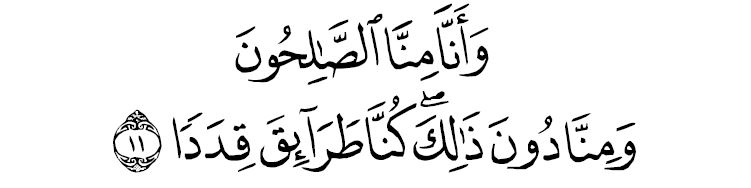 وَأَنَّا مِنَّا ٱلصَّـٰلِحُونَ
وَمِنَّا دُونَ ذَٰلِكَ ۖ كُنَّا طَرَآئِقَ قِدَدًا ١١